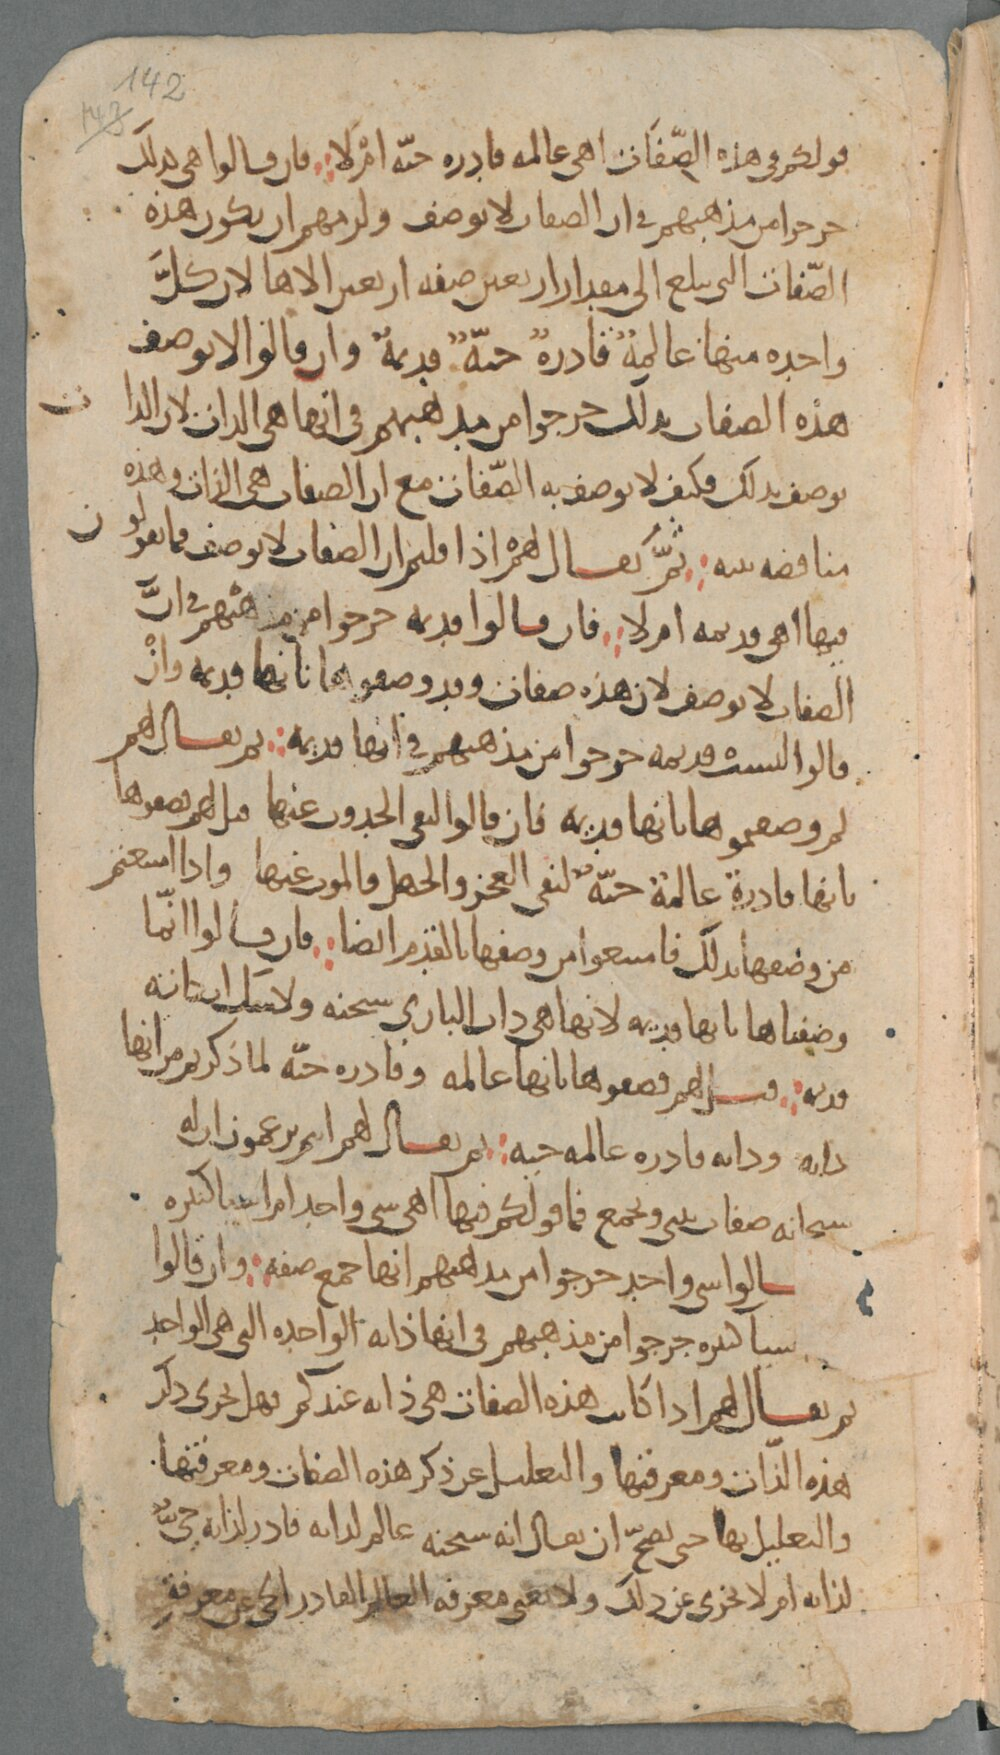 142
143
قولكم في هذه الصّفات اهي عالمه قادره حيّه امْ لا فان قالوا هي بذلك
خرجوا من مذهبهم في ان الصفات لا توصف ولزمهم ان يكون هذه
الصّفات التي تبلغ الى مقدار اربعين صفه اربعين الاها لان كلَّ
واحده منها عالمة قادرة حيّة قديمة وان قالوا لا توصف
هذه الصفات بذلك خرجوا من مذهبهم في انها هي الذات لان الذات
توصف بذلك فكيف لا توصف به الصّفات مع ان الصفات هي الذات وهذه
مناقضه بينه ثمَّ يقال لهمْ اذا قلتم ان الصفات لا توصف فما تقولون
فيها اهي قديمه ام لا فان قالوا قديمه خرجوا من مذهبهم في انَّ
الصفات لا توصف لان هذه صفات وقد وصفوها بانها قديمه وانْ
قالوا ليست قديمه خرجوا من مذهبهم في انها قديمه ثم يقال لهم
لم وصفتموها بانها قديمه فان قالوا لنفي الحدوث عنها قيل لهم فصفوها
بانها قادرة عالمة حيّة لنفي العجز والجهل والموت عنها واذا امتنعتم
من وصفها بذلك فامتنعوا من وصفها بالقدم ايضا فان قالوا انّما
وصفناها بانها قديمه لانها هي ذات الباري سبحنه ولا شك ان ذاته
قديمه قيل لهم فصفوها بانها عالمه وقادره حيّه لما ذكرتم من انها
ذاته وذاته قادره عالمه حيه ثم يقال لهم انتم تزعمون ان لله
سبحانه صفات تثنى وتجمع فما قولكم فيها اهي شي واحد ام اشيا كثيره
قالوا شي واحد خرجوا من مذهبهم انها جمع صفه وان قالوا
اشيا كثيره خرجوا من مذهبهم في انها ذاته الواحده التي هي الواحد
ثم يقال لهم اذا كانت هذه الصفات هي ذاته عندكم فهل يجزى ذكر
هذه الذّات ومعرفتها والتعليل عن ذكر هذه الصفات ومعرفتها
والتعليل بها حتى يصحّ ان يقال انه سبحنه عالم لذاته قادر لذاته حيّ
لذاته ام لا يجزى عن ذلك ولا تغني معرفه العالم القادر الحي عن معرفة